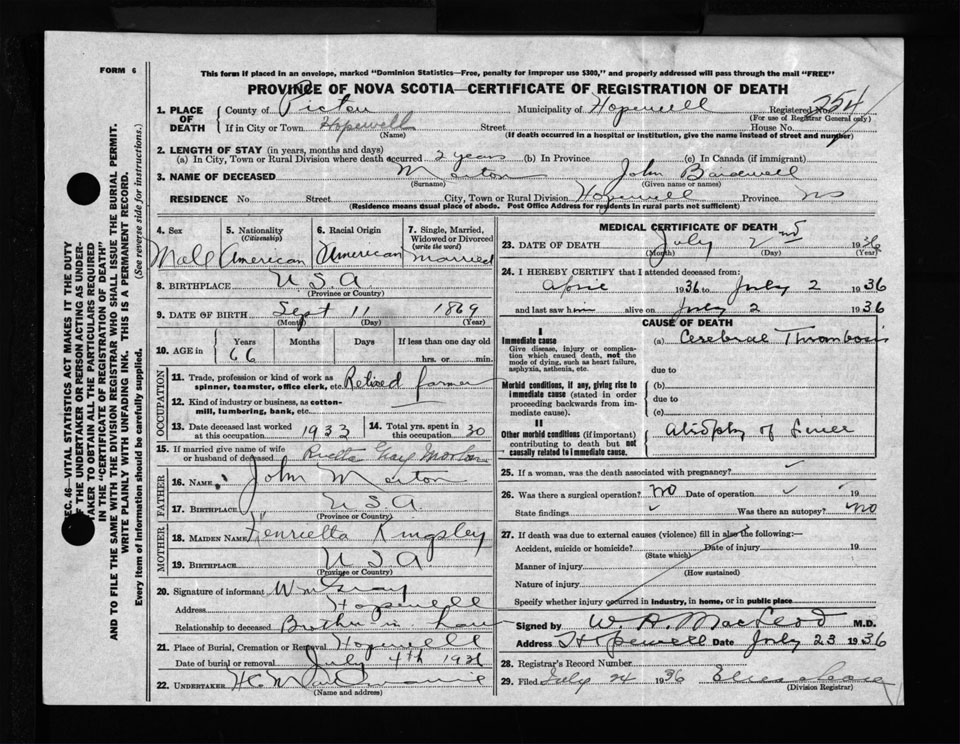 FORM 6
This form if placed in an envelope, marked "Dominion Statistics—Free, penalty for improper use $300," and properly addressed will pass through the mail "FREE"
PROVINCE OF NOVA SCOTIA—CERTIFICATE OF REGISTRATION OF DEATH
SEC. 46—VITAL STATISTICS ACT MAKES IT THE DUTY
OF THE UNDERTAKER OR PERSON ACTING AS UNDER-
TAKER TO OBTAIN ALL THE PARTICULARS REQUIRED
IN THE "CERTIFICATE OF REGISTRATION OF DEATH"
AND TO FILE THE SAME WITH THE DIVISION REGISTRAR WHO SHALL ISSUE THE BURIAL PERMIT.
WRITE PLAINLY WITH UNFADING INK. THIS IS A PERMANENT RECORD.
Every item of Information should be carefully supplied. (See reverse side for instructions.)
1. PLACE OF DEATH
County of Pictou Municipality of Hopewell Registered No. 254
(For use of Registrar General only)
If in City or Town Hopewell Street House No.
(Name) (If death occurred in a hospital or institution, give the name instead of street and number)
2. LENGTH OF STAY (in years, months and days)
(a) In City, Town or Rural Division where death occurred 2 years (b) In Province (c) In Canada (if immigrant)
3. NAME OF DECEASED Morton John Bardwell
(Surname) (Given name or names)
RESIDENCE No. Street City, Town or Rural Division Hopewell Province NS
(Residence means usual place of abode. Post Office Address for residents in rural parts not sufficient)
4. Sex 5. Nationality (Citizenship) 6. Racial Origin 7. Single, Married, Widowed or Divorced (write the word)
Male American American Married
8. BIRTHPLACE U S A
(Province or Country)
9. DATE OF BIRTH Sept 11 1869
(Month) (Day) (Year)
10. AGE in Years Months Days If less than one day old
66 hrs. or min.
OCCUPATION
11. Trade, profession or kind of work as spinner, teamster, office clerk, etc. Retired farmer
12. Kind of industry or business, as cotton-mill, lumbering, bank, etc.
13. Date deceased last worked at this occupation 1933 14. Total yrs. spent in this occupation 30
15. If married give name of wife or husband of deceased Morton
FATHER
16. NAME John Morton
17. BIRTHPLACE U S A
(Province or Country)
MOTHER
18. MAIDEN NAME Henrietta Kingsley
19. BIRTHPLACE U S A
(Province or Country)
20. Signature of informant Wm Gray
Address Hopewell
Relationship to deceased Brother in Law
21. Place of Burial, Cremation or Removal Hopewell
Date of burial or removal July 4th 1936
22. UNDERTAKER
(Name and address)
MEDICAL CERTIFICATE OF DEATH
23. DATE OF DEATH July 2nd 1936
(Month) (Day)
24. I HEREBY CERTIFY that I attended deceased from:
April 1936 to July 2 1936
and last saw him alive on July 2 1936
CAUSE OF DEATH
I
Immediate cause
Give disease, injury or complication which caused death, not the mode of dying, such as heart failure, asphyxia, asthenia, etc.
(a) Cerebral Thrombosis
due to
Morbid conditions, if any, giving rise to immediate cause (stated in order proceeding backwards from immediate cause).
(b)
due to
(c)
II
Other morbid conditions (if important) contributing to death but not causally related to immediate cause.
Atrophy of Liver
25. If a woman, was the death associated with pregnancy?
26. Was there a surgical operation? no Date of operation 19
State findings Was there an autopsy? no
27. If death was due to external causes (violence) fill in also the following:—
Accident, suicide or homicide? Date of injury 19
(State which)
Manner of injury
(How sustained)
Nature of injury
Specify whether injury occurred in industry, in home, or in public place
Signed by W. A. MacLeod M.D.
Address Hopewell Date July 23 1936
28. Registrar's Record Number
29. Filed July 24 1936
(Division Registrar)